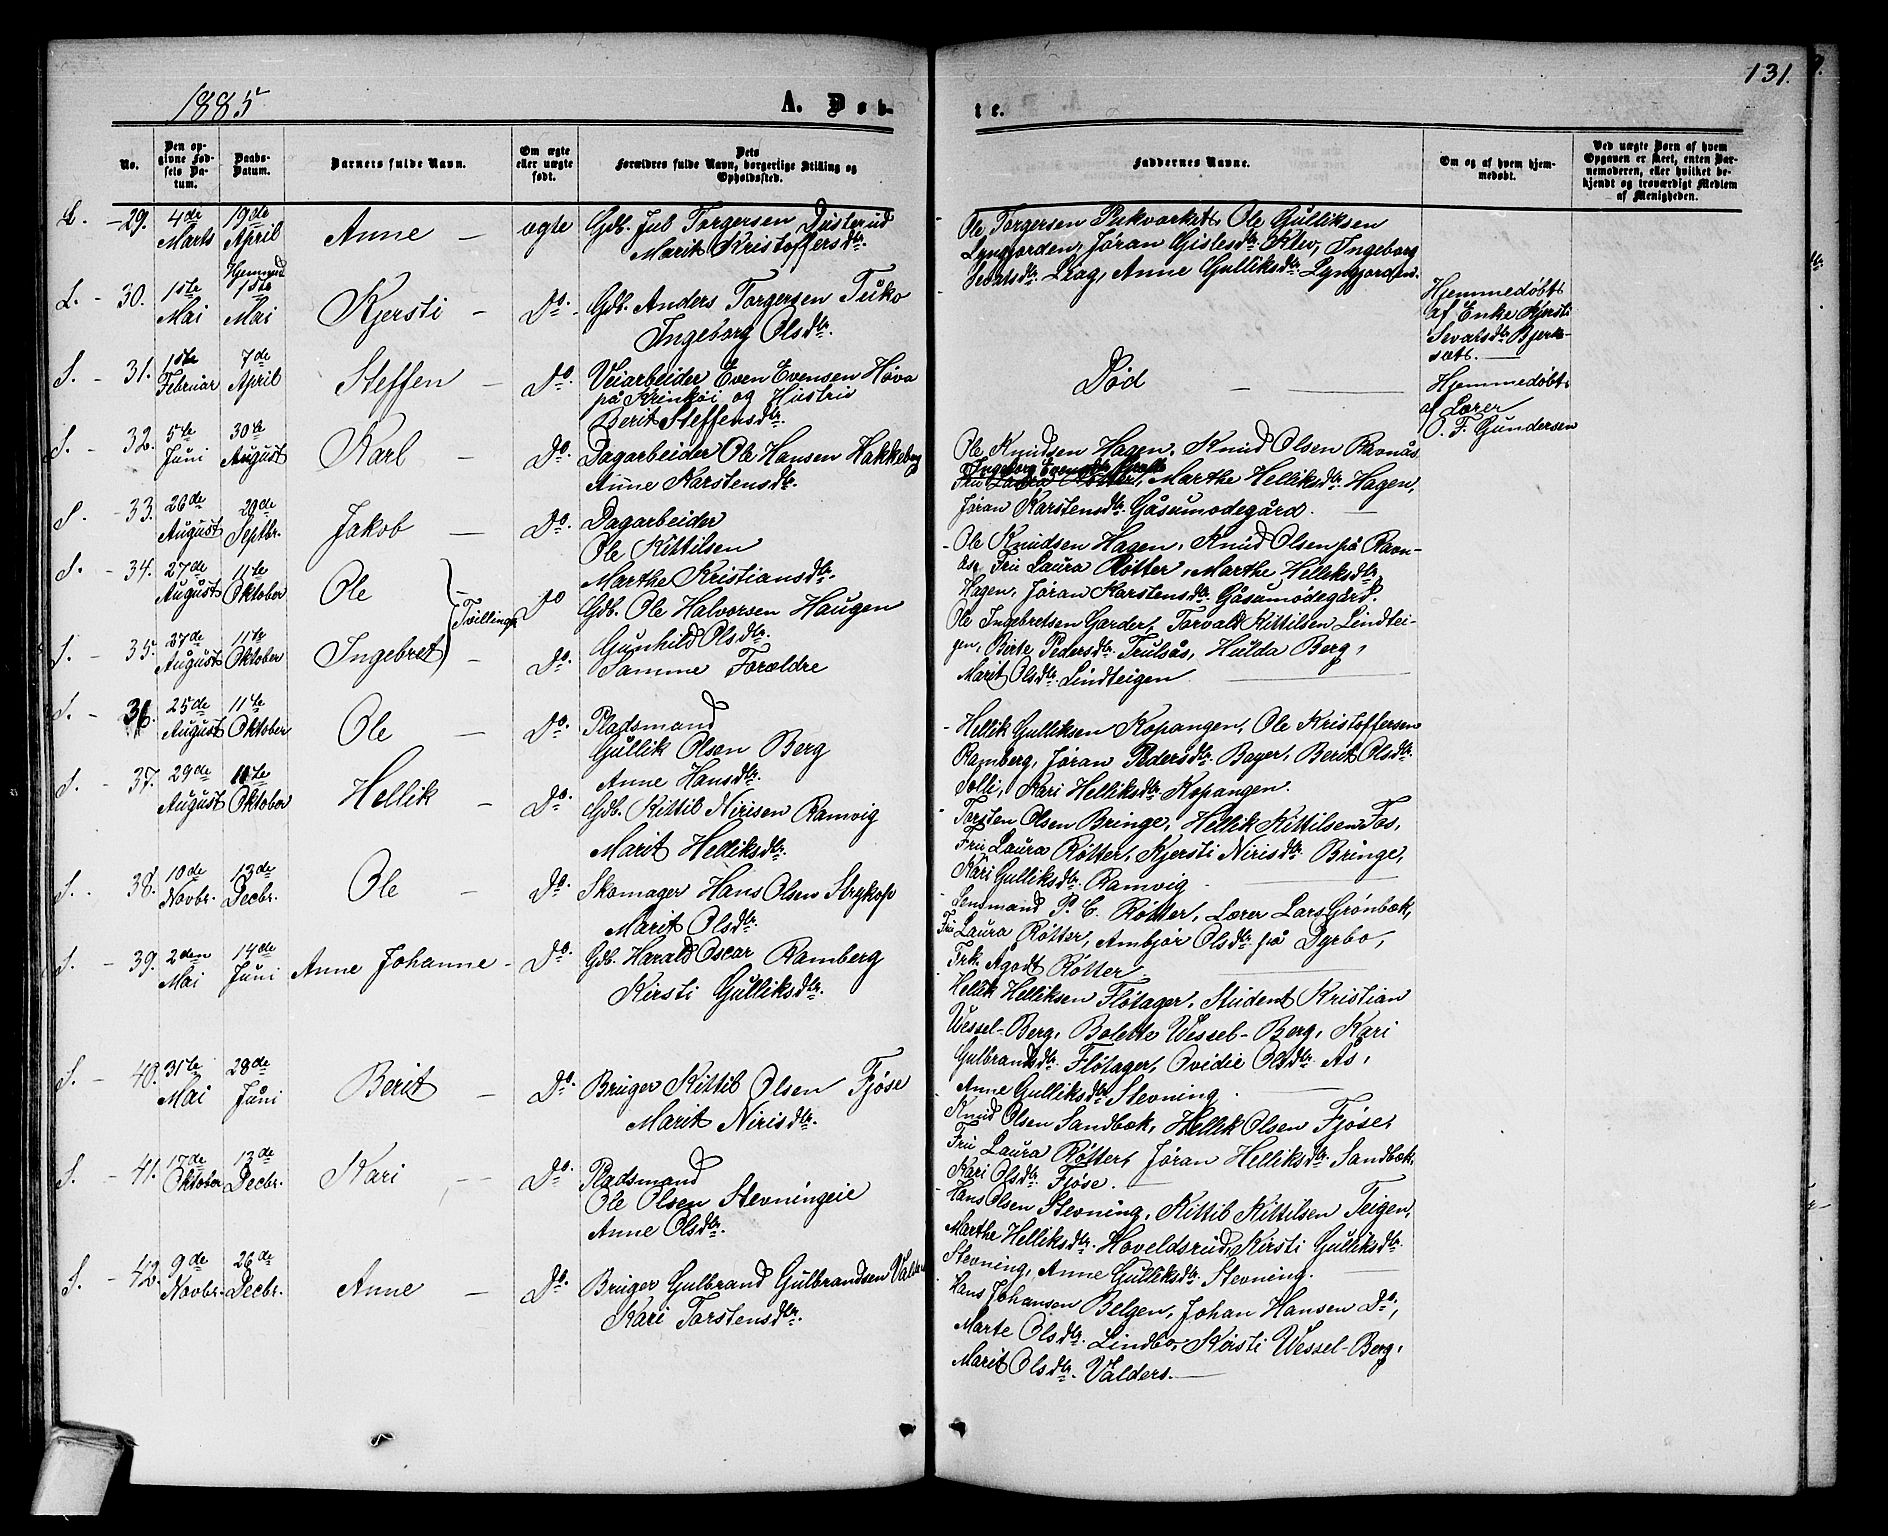 1885
A. Døb-
te.
131.
No.
Den op-
givne Fød-
sels Da-
tum.
Daabs-
Datum.
Barnets fulde Navn.
Om ægte
eller uægte
født.
Dets
Forældres fulde Navn, borgerlige Stilling og
Opholdssted.
Faddernes Navne.
Om og af hvem hjem-
medøbt.
Ved uægte Børn af hvem
Opgaven er skeet, enten Bar-
nemoderen, eller hvilket be-
kjendt og troværdigt Medlem
af Menigheden.
L. - 29. 4de Marts 19de April Anne - ægte
Gdb. Jul Torgersen Dusterud
Marit Kristoffersdtr.
Ole Torgersen Pukværket, Ole Gulliksen
Lyngjorden, Jøran Gislesdtr. Klev, Ingeborg
Sevatsdtr. Liag, Anne Gulliksdtr. Lyngjorden.
L. - 30. 1ste Mai Hjemmed 1ste Mai Kjersti - Do.
Gdb. Anders Torgersen Tuko
Ingeborg Olsdtr.
Hjemmedøbt
af Enke Kjersti
Sevatsdtr. Bjerk-
sæt. -
S. - 31. 1ste Februar 7de April Steffen - Do.
Veiarbeider Even Evensen Høva
på Krinkoi og Hustru
Berit Steffensdtr.
Død
Hjemmedøbt
af Lærer
O. F. Gundersen
S. - 32. 5te Juni 30te August Karl - Do.
Dagarbeider Ole Hansen Hakkeberg
Anne Karstensdtr.
Ole Knudsen Hagen, Knud Olsen Ravnås
Ingeborg Evensdtr.
Fru Laura Røtter, Marthe Helliksdtr. Hagen,
Jøran Karstensdtr. Gåsumodegård.
S. - 33. 26de August 29de Septbr. Jakob - Do.
Dagarbeider
Ole Kittilsen
Marthe Kristiansdtr.
Ole Knudsen Hagen, Knud Olsen på Ravn-
ås, Fru Laura Røtter, Marthe Helliksdtr.
Hagen, Jøran Karstensdtr. Gåsumodegård.
S. - 34. 27de August 11te Oktober Ole - Do
Tvillinger
Gdb. Ole Halvorsen Haugen
Gunhild Olsdtr.
Ole Ingebretsen Garder, Torvald Kittilsen Lindtei-
gen, Birte Pedersdtr. Trulsås, Hulda Berg,
Marit Olsdtr. Lindteigen
S. - 35. 27de August 11te Oktober Ingebret - Do.
Samme Forældre
S. - 36. 25de August 11te Oktober Ole - Do.
Pladsmand
Gullik Olsen Berg
Anne Hansdtr.
Hellik Gulliksen Kopangen, Ole Kristoffersen
Ramberg, Jøran Pedersdtr. Bager, Berit Olsdtr.
Solli, Kari Helliksdtr. Kopangen.
S. - 37. 29de August 11te Oktober Hellik - Do.
Gdb. Kittil Nirisen Ramvig
Marit Helliksdtr.
Torsten Olsen Bringe, Hellik Kittilsen Fos,
Fru Laura Røtter, Kjersti Nirisdtr. Bringe,
Kari Gulliksdtr. Ramvig
S. - 38. 10de Novbr. 13de Decbr. Ole - Do.
Skomager Hans Olsen Strykop
Marit Olsdtr.
Lensmand P. C. Røtter, Lærer Lars Grønbæk,
Fru Laura Røtter, Ambjør Olsdtr. på Dyrbo,
Frk. Agodt Røtter
S. - 39. 2den Mai 14de Juni Anne Johanne - Do.
Gdb. Harald Oscar Ramberg
Kirsti Gulliksdtr.
Hellik Helliksen Fløtager, Student Kristian
Wessel-Berg, Bolette Wessel-Berg, Kari
Gulbrandsdtr. Fløtager, Ovidie Olsdtr. Ås,
Anne Gulliksdtr. Stevning.
S. - 40. 31te Mai 28de Juni Berit - Do.
Bruger Kittil Olsen Fjøse
Marit Nirisdtr.
Knud Olsen Sandbæk, Hellik Olsen Fjøse,
Fru Laura Røtter, Jøran Helliksdtr. Sandbæk,
Kari Olsdtr. Fjøse.
S. - 41. 17de Oktober 13de Decbr. Kari - Do.
Pladsmand
Ole Olsen Stevningeie
Anne Olsdtr.
Hans Olsen Stevning, Kittil Kittilsen Teigen,
Marthe Helliksdtr. Hoveldsrud, Kirsti Gulliksdtr.
Stevning, Anne Gulliksdtr. Stevning.
S. - 42. 9de Novbr. 26de Decbr. Anne - Do.
Bruger Gulbrand Gulbrandsen Valders
Kari Torstensdtr.
Hans Johansen Belgen, Johan Hansen Do,
Marte Olsdtr. Lindbo, Kirsti Wessel-Berg,
Marit Olsdtr. Valders.